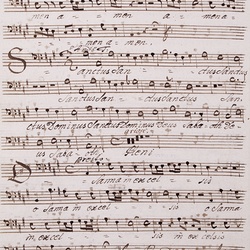 men a men a men
a men a men.
Sanctus San ctus Sanctus
Sanctus San ctus Sanctus San
ctus Dominus Sanctus Dominus Deus
us Saba oth Pleni
Osanna in excel sis
o Sanna in excel sis o Sanna
in excel sis in excelsis